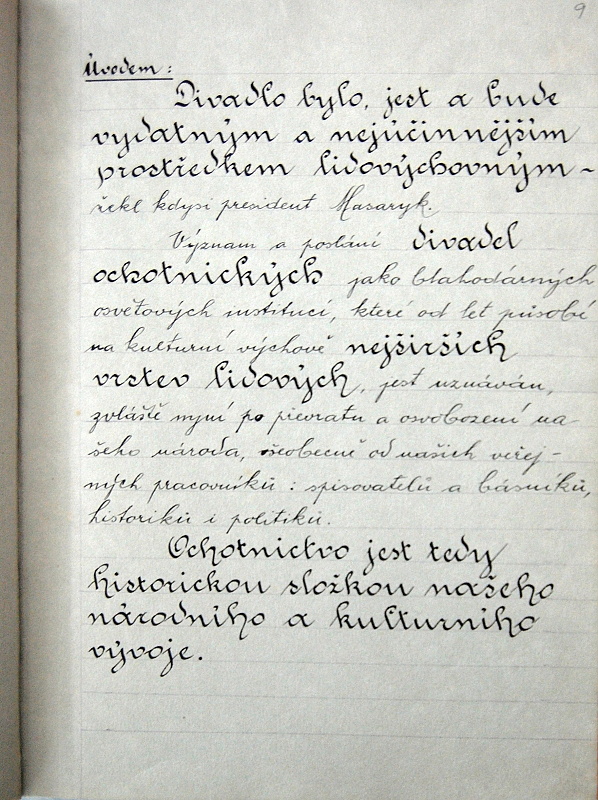 9
Úvodem:
Divadlo bylo, jest a bude
vydatným a nejúčinnějším
prostředkem lidovýchovným -
řekl kdysi president Masaryk.
Význam a poslání divadel
ochotnických jako blahodárných
osvětových institucí, které od let působí
na kulturní výchově nejširších
vrstev lidových, jest uznáván,
zvláště nyní po převratu a osvobození na
šeho národa, všeobecně od našich veřej-
ných pracovníků : spisovatelů a básníků,
historiků i politiků.
Ochotnictvo jest tedy
historickou složkou našeho
národního a kulturního
vývoje.